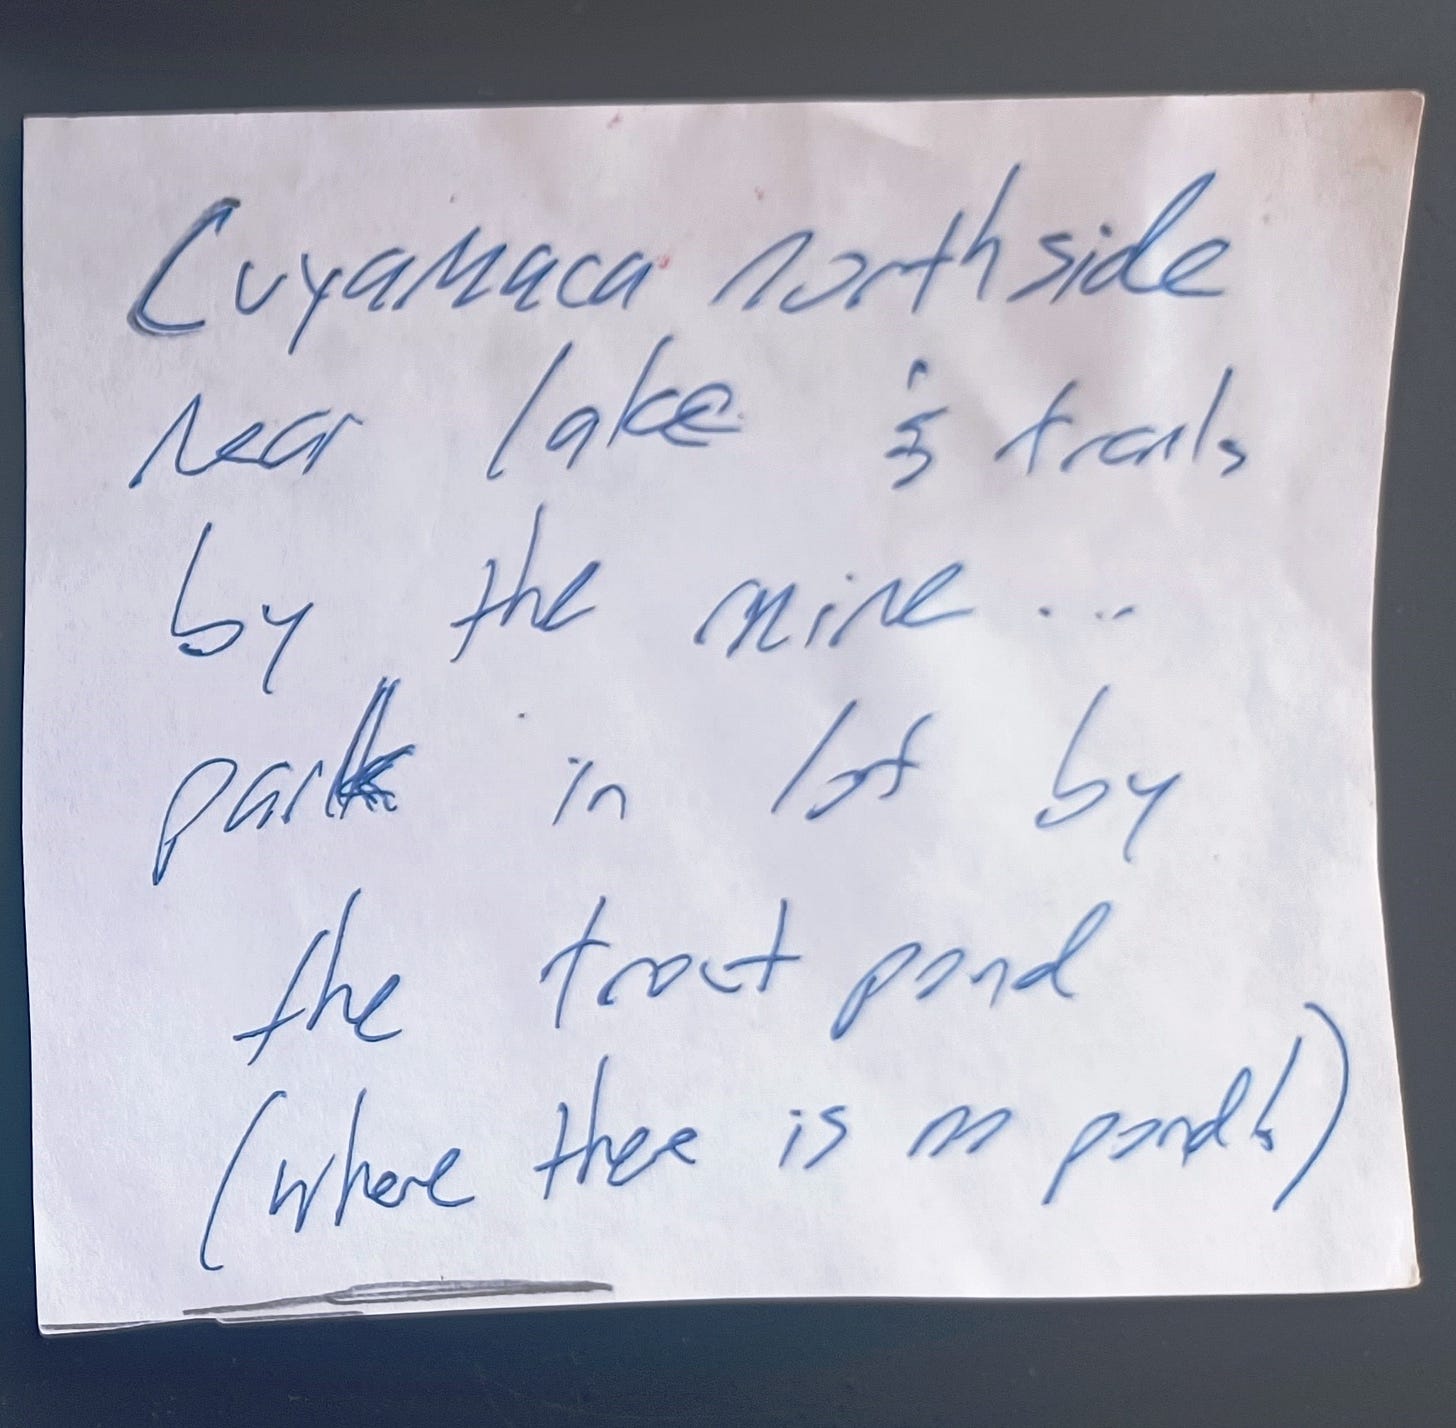 Cuyamaca northside
near lake & trails
by the mine...
park in lot by
the trout pond
(where there is no pond!)